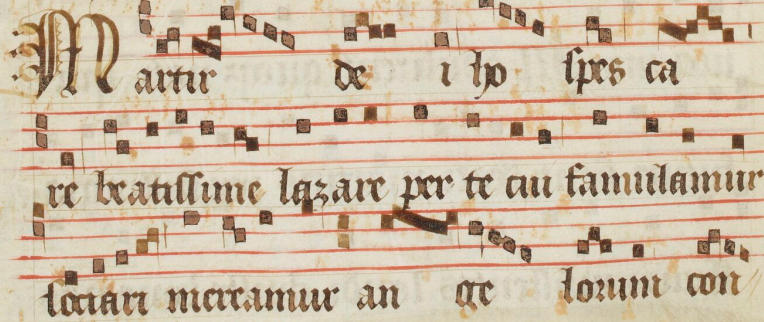 Martir de i ho spes ca
re beatissime lazare per te cui famulamur
sociari mereamur an ge lorum con